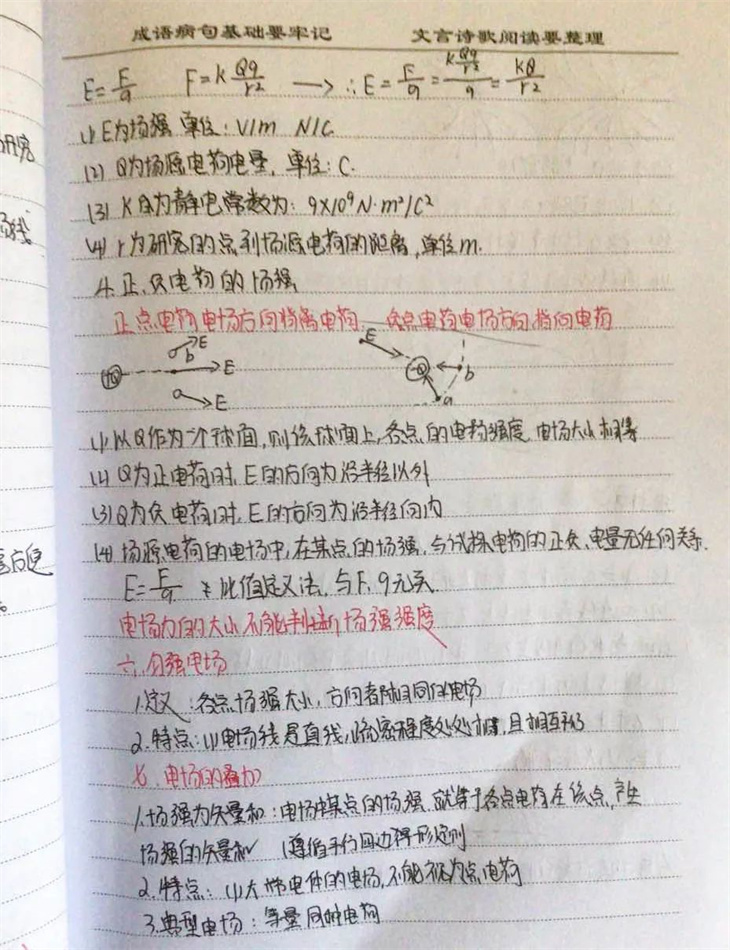 成语病句基础要牢记 文言诗歌阅读要整理
E=F/q F=kQq/r² ⟶ ∴E=F/q=(kQq/r²)/q=kQ/r²
(1) E为场强 单位: V/m N/C
(2) Q为场源电荷电量, 单位: C.
(3) K 为静电常数为: 9×10⁹N·m²/C²
(4) r为研究的点到场源电荷的距离,单位m.
4.正、负电荷的场强
正点电荷电场方向背离电荷, 负点电荷电场方向指向电荷
E
b
+Q E
a E
E
-Q b
a
(1) 以Q作为一个球面,则该球面上,各点的电场强度 电场大小相等
(2) Q为正电荷时, E的方向为沿半径以外
(3) Q为负电荷时, E的方向为沿半径向内
(4) 场源电荷的电场中,在某点的场强,与试探电荷的正负、电量无任何关系.
E=F/q 比值定义法, 与F、q无关
电场力的大小不能判断场强强度
六、匀强电场
1.定义: 各点场强大小、方向都相同的电场
2.特点: (1)电场线是直线,疏密程度处处相等,且相互平行
七、电场的叠加
1.场强为矢量和: 电场中某点的场强 就等于各点电荷在该点产生
场强的矢量和 (遵循平行四边形定则
2.特点: (1)大带电体的电场,不能视为点电荷
3.典型电场: 等量同种电荷
研究
场线
方便